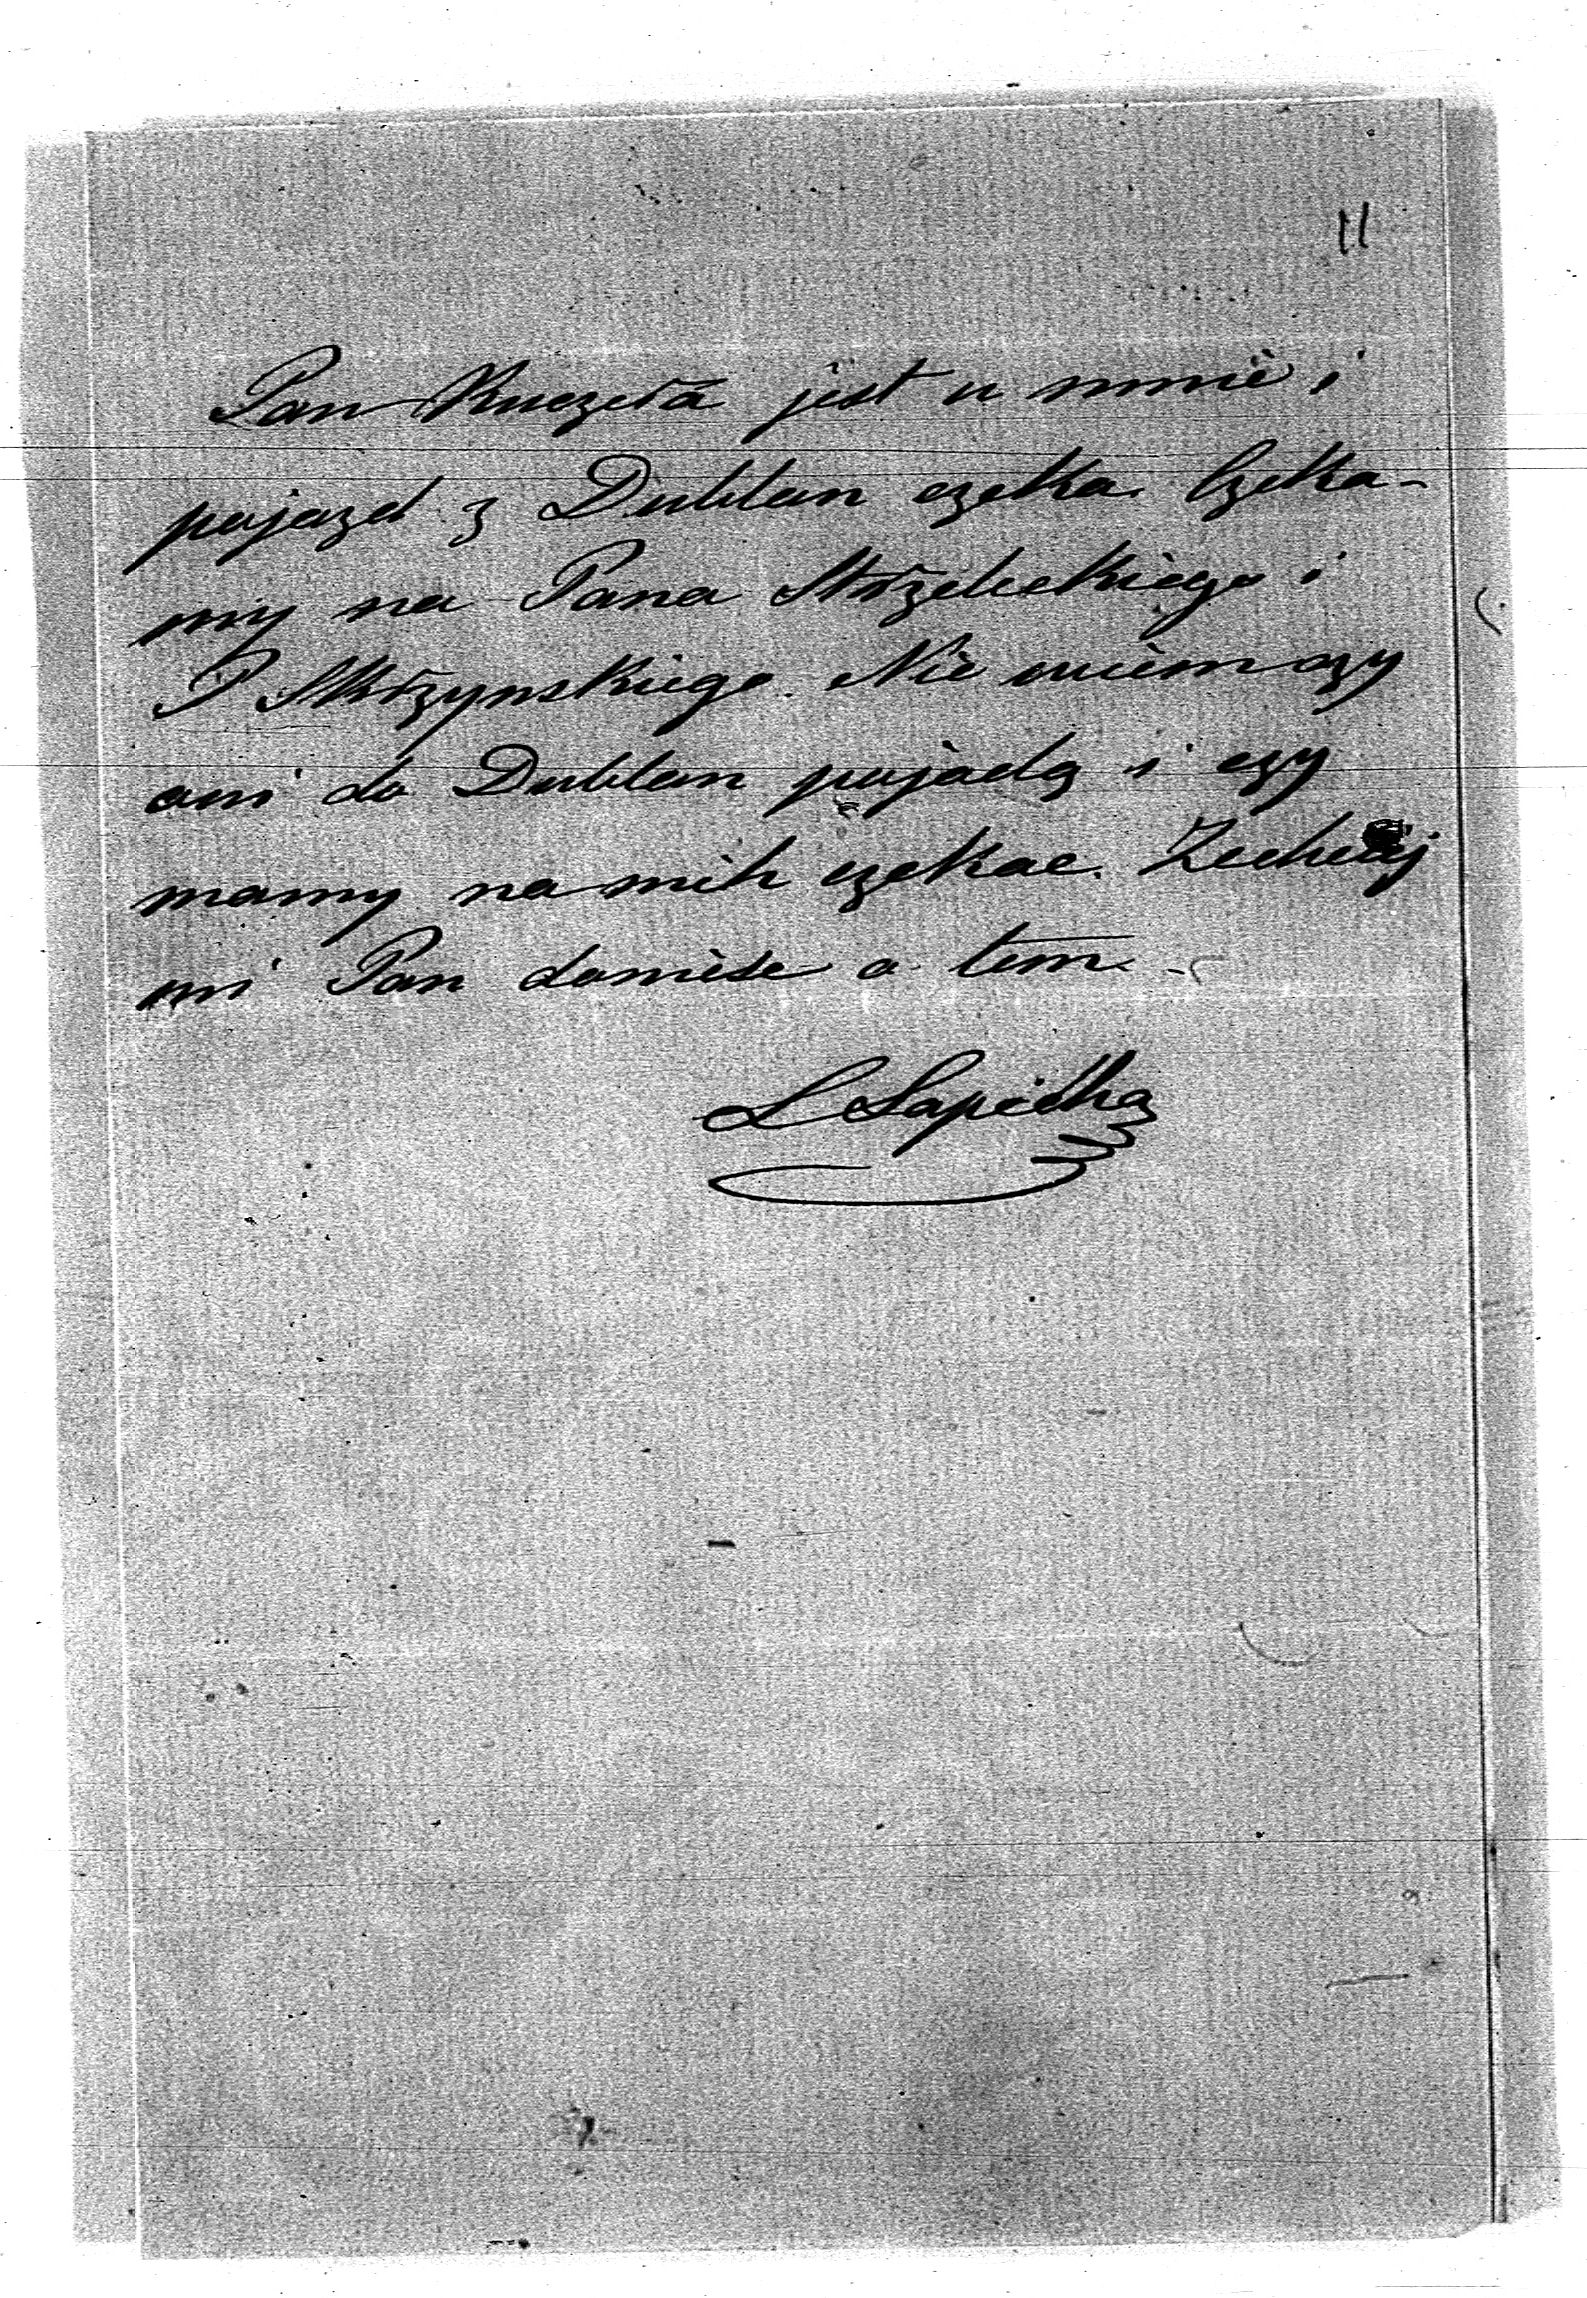 11
Pan Kuczera jest u mnie i
pojazd z Dublan czeka. Czeka-
my na Pana Strzeleckiego i
P Skrzynskiego. Nie wiem czy
oni do Dublan pojadą i czy
mamy na nich czekac. Zechciej
mi Pan donieść o tem.
L Sapieha